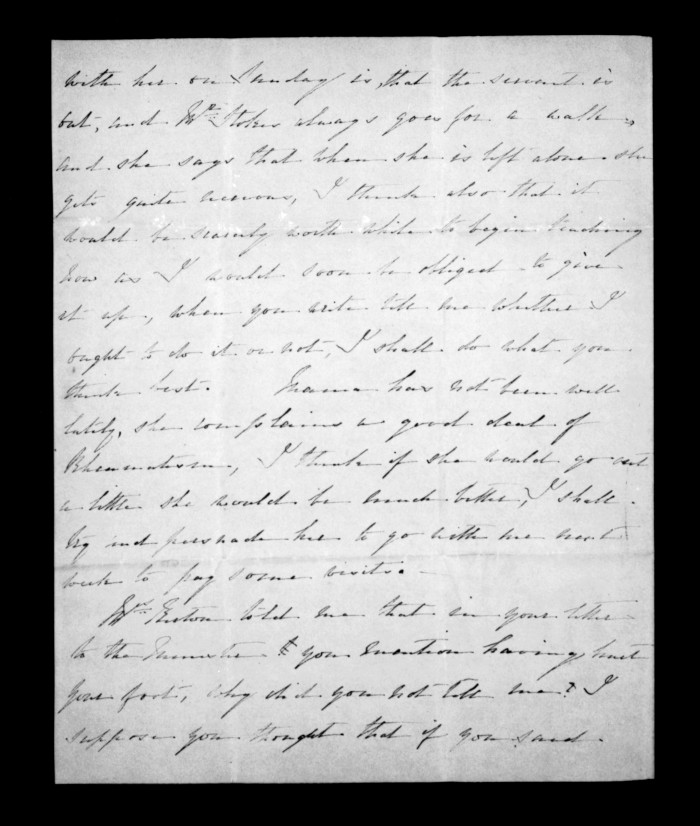 with her on Sunday is, that the servant is
out, and Mr Stokes always goes for a walk,
and she says that when she is left alone she
gets quite nervous, I think also that it
would be scarcely worth while to begin teaching
now as I would soon be obliged to give
it up, when you write tell me whether I
ought to do it or not, I shall do what you
think best. Mama has not been well
lately, she complains a good deal of
Rheumatism, I think if she would go out
a little she would be much better, I shall
try and persuade her to go with me next
week to pay some visits.
told me that in your letter
to the you mention having hurt
your foot, why did you not tell me? I
suppose you thought that if you said